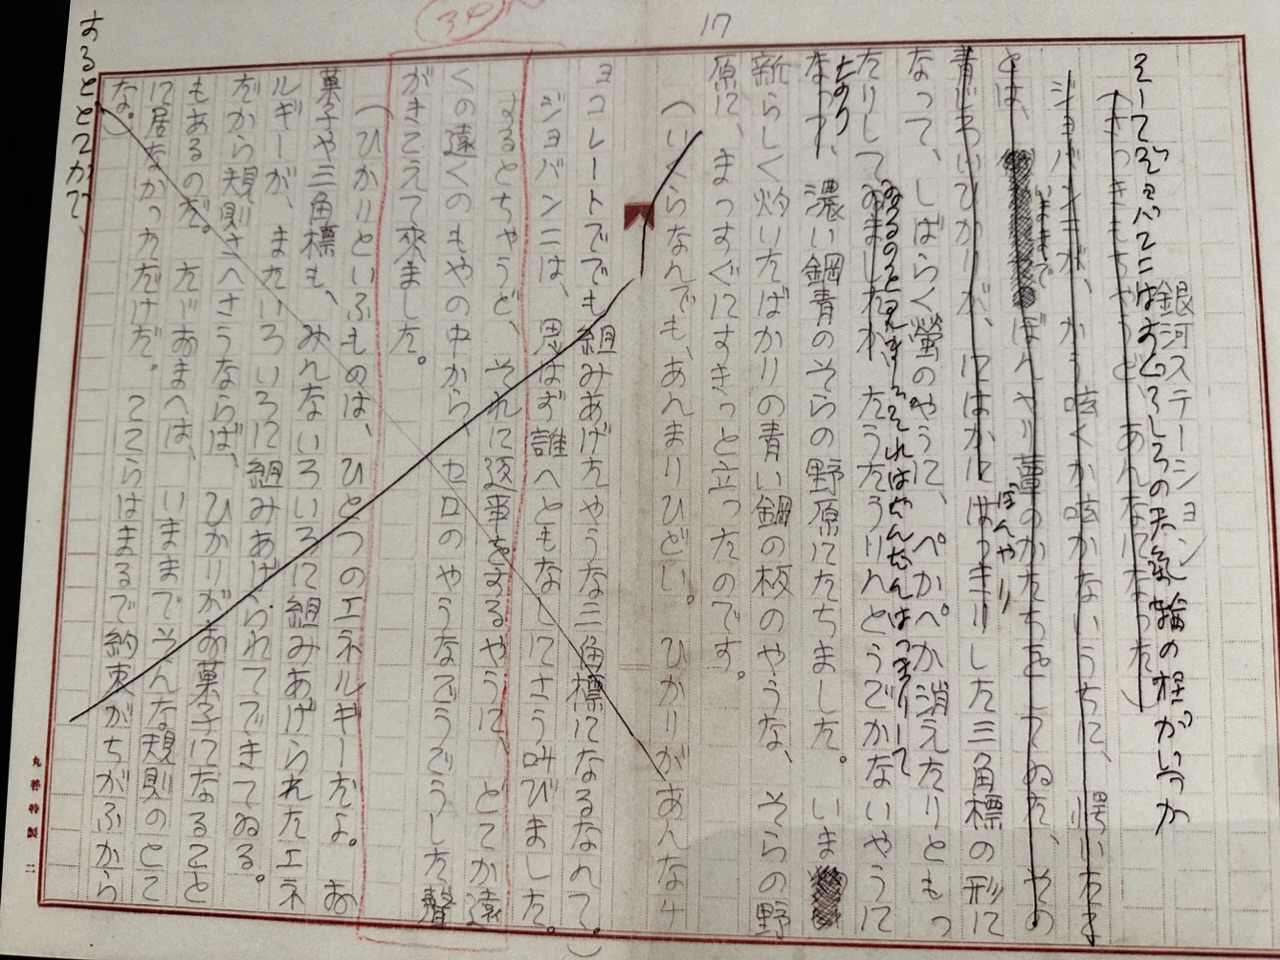 17
銀河ステーション
そしてジョバンニはすぐうしろの天気輪の柱がいつか
(さっきもちゃうど、あんなになった。)
ジョバンニが、かう呟くか呟かないうちに、愕いたこ
とは、いままでぼんやり蕈のかたちをしてゐた、その
青じろいひかりが、にはかにはっきりした三角標の形に
ぼんやり
なって、しばらく蛍のやうに、ぺかぺか消えたりともっ
たりしてゐるのを見ました。それはだんだんはっきりして
たりしてゐましたが、たうたうりんとうごかないやうに
なって、濃い鋼青のそらの野原にたちました。いま
新らしく灼いたばかりの青い鋼の板のやうな、そらの野
原に、まっすぐにすきっと立ったのです。
(いくらなんでも、あんまりひどい。ひかりがあんなチ
ョコレートででも組みあげたやうな三角標になるなんて。)
ジョバンニは、思はず誰へともなしにさう叫びました。
するとちゃうど、それに返事をするやうに、どこか遠
くの遠くのもやの中から、セロのやうなごうごうした聲
がきこえて來ました。
(ひかりといふものは、ひとつのエネルギーだよ。お
菓子や三角標も、みんないろいろに組みあげられたエネ
ルギーが、またいろいろに組みあげられてできてゐる。
だから規則さへさうならば、ひかりがお菓子になること
もあるのだ。たゞおまへは、いままでそんな規則のとこ
に居なかっただけだ。ここらはまるで約束がちがふから
な。)
するとどこかで、
丸善特製 二